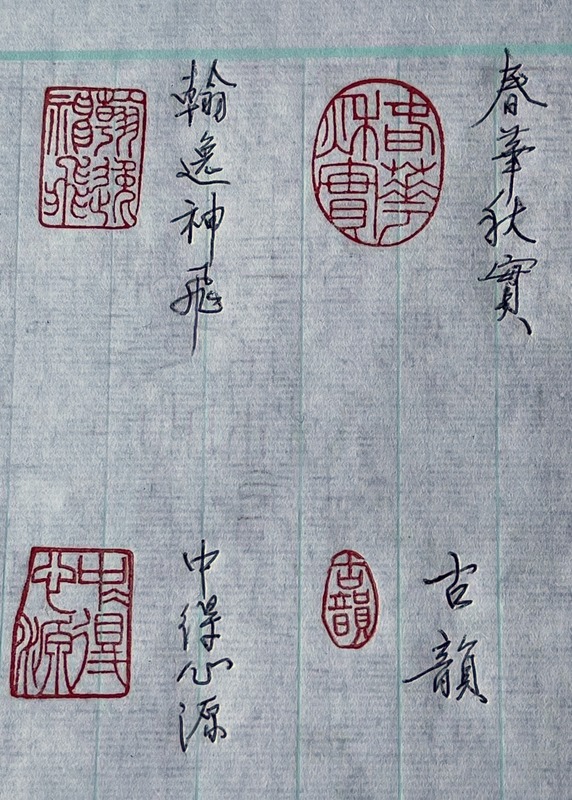 春華秋實
春華秋實
翰逸神飛
翰逸神飛
古韻
古韻
中得心源
中得心源